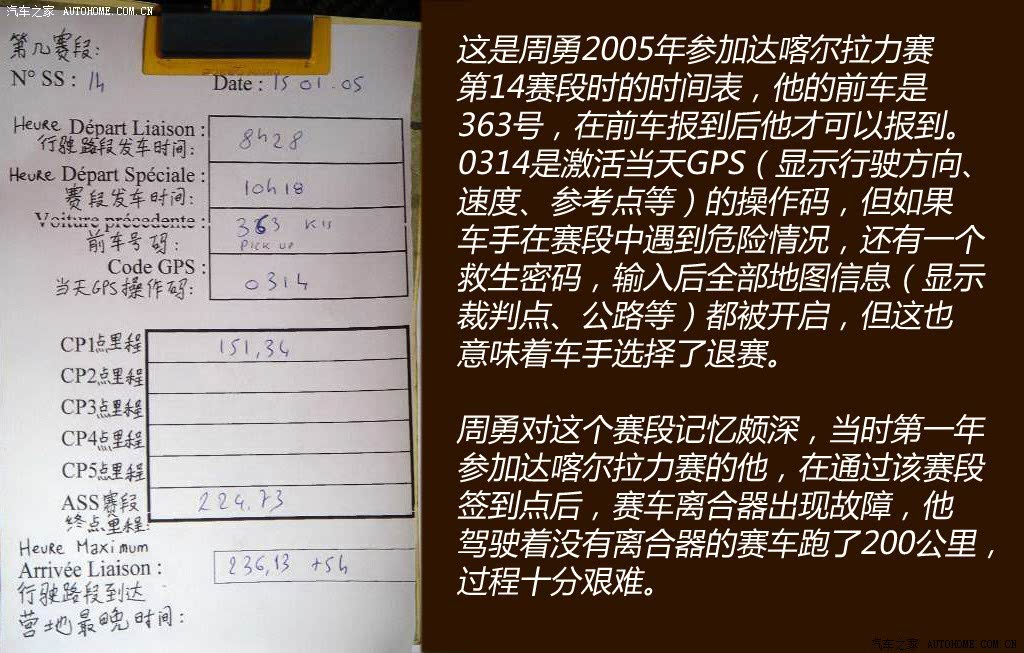 汽车之家 AUTOHOME.COM.CN
第几赛段:
N° SS : 14
Date : 15 01.05
Heure Départ Liaison :
行驶路段发车时间:
8h28
Heure Départ Spéciale :
赛段发车时间:
10h18
Voiture précedente :
前车号码:
363 K15
PICK UP
Code GPS :
当天GPS操作码:
0314
CP1点里程
151,34
CP2点里程
CP3点里程
CP4点里程
CP5点里程
ASS赛段
终点里程:
224,73
Heure Maximum
Arrivée Liaison :
236,13 +5h
行驶路段到达
营地最晚时间:
这是周勇2005年参加达喀尔拉力赛
第14赛段时的时间表，他的前车是
363号，在前车报到后他才可以报到。
0314是激活当天GPS（显示行驶方向、
速度、参考点等）的操作码，但如果
车手在赛段中遇到危险情况，还有一个
救生密码，输入后全部地图信息（显示
裁判点、公路等）都被开启，但这也
意味着车手选择了退赛。
周勇对这个赛段记忆颇深，当时第一年
参加达喀尔拉力赛的他，在通过该赛段
签到点后，赛车离合器出现故障，他
驾驶着没有离合器的赛车跑了200公里，
过程十分艰难。
汽车之家 AUTOHOME.COM.CN